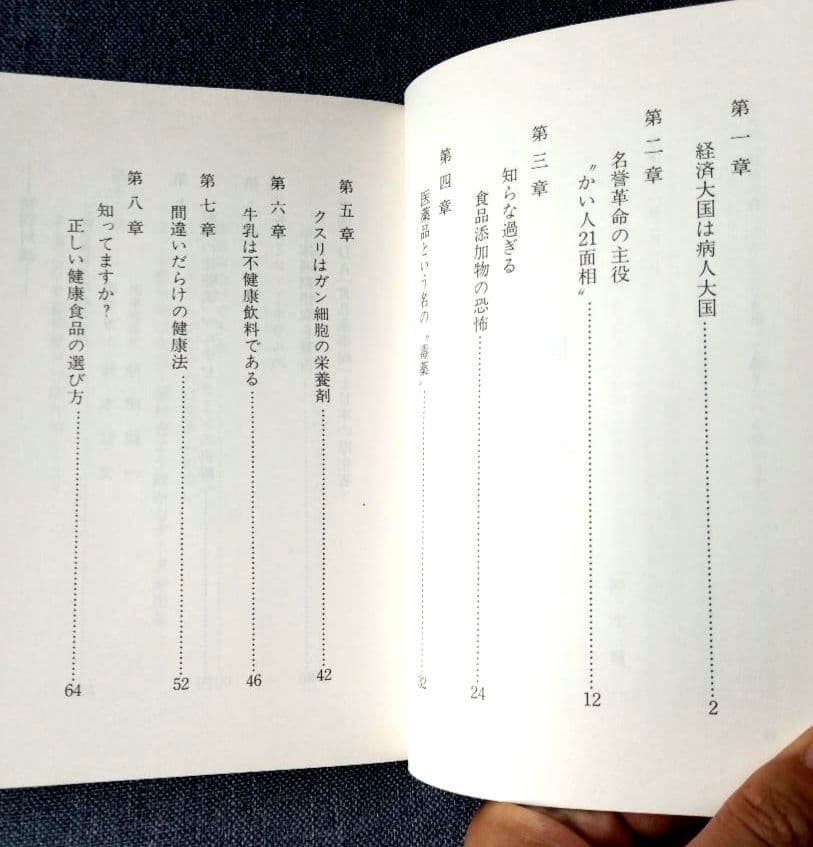 第一章
経済大国は病人大国……………………2
第二章
名誉革命の主役
〝かい人21面相〟……………………12
第三章
知らな過ぎる
食品添加物の恐怖……………………24
第四章
医薬品という名の〝毒薬〟……………………32
第五章
クスリはガン細胞の栄養剤……………………42
第六章
牛乳は不健康飲料である……………………46
第七章
間違いだらけの健康法……………………52
第八章
知ってますか？
正しい健康食品の選び方……………………64